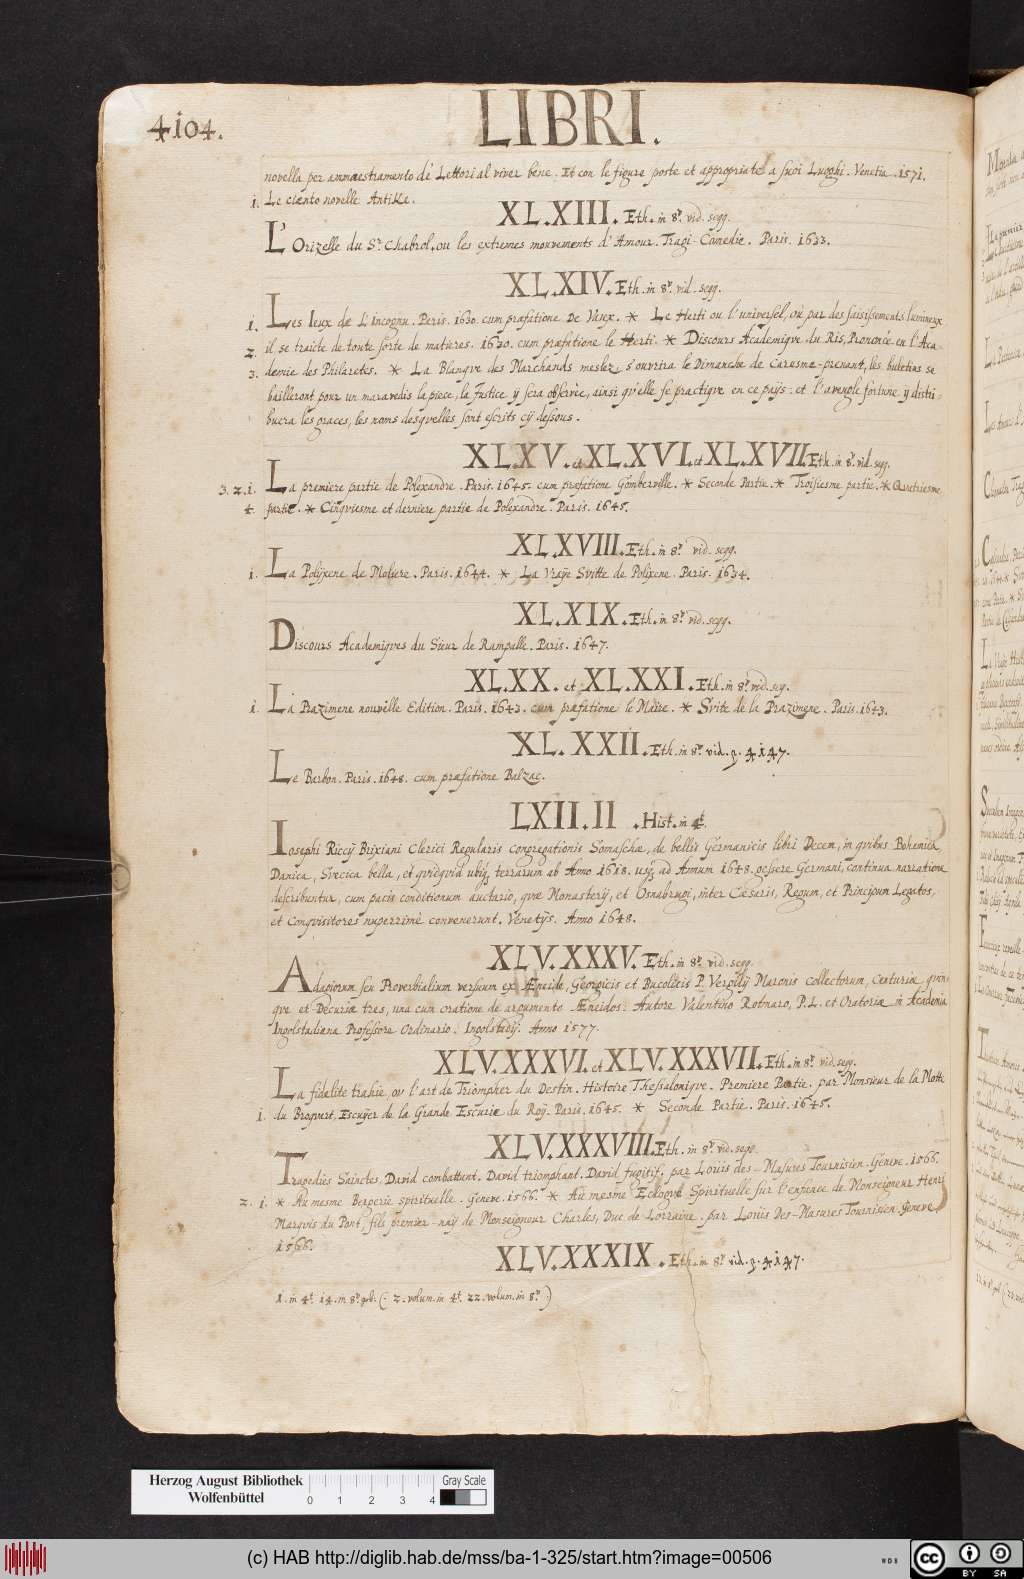 4104.
LIBRI.
novella per ammaestramento de' Lettori al viver bene. Et con le figure poste et appropriate a suoi Luoghi. Venetia. 1571.
1. Le ciento novelle Antike.
XL.XIII. Eth. in 8º. vid. segg.
L'Orizelle du Sr. Chabrol. ou les extremes mouvements d'Amour. Tragi-Comedie. Paris. 1633.
XL.XIV. Eth. in 8º. vid. segg.
1. Les Ieux de L'incognu. Paris. 1630. cum præfatione De Vaux. * Le Herti ou l'universel, où par des saisissements lumineux
2. il se traicte de toute sorte de matieres. 1630. cum præfatione le Herti. * Discours Academiqve du Ris, Prononcé en l'Aca-
3. demie des Philaretes. * La Blanqve des Marchands meslez, s'ouvrira le Dimanche de Caresme-prenant, les buletins se
bailleront pour un maravedis la piece, la Justice ÿ sera observée, ainsi qu'elle se practiqve en ce païs: et l'aveugle fortune y distri-
buera les graces, les noms desqvelles sont escrits cÿ dessous.
XL.XV. et XL.XVI. et XL.XVII. Eth. in 8º. vid. segg.
3. 2. 1. La premiere partie de Polexandre. Paris. 1645. cum præfatione Gomberville. * Seconde Partie. * Troisiesme partie. * Qvatriesme
4. partie. * Cinqviesme et derniere partie de Polexandre. Paris. 1645.
XL.XVIII. Eth. in 8º. vid. segg.
1. La Polÿxene de Moliere. Paris. 1644. * La Vraÿe Svitte de Polixene. Paris. 1634.
XL.XIX. Eth. in 8º. vid. segg.
Discours Academiqves du Sieur de Rampalle. Paris. 1647.
XL.XX. et XL.XXI. Eth. in 8º. vid. seg.
1. La Prazimene nouvelle Edition. Paris. 1643. cum præfatione le Maire. * Svite de la Prazimene. Paris. 1643.
XL.XXII. Eth. in 8º. vid. p. 4147.
Le Barbon. Paris. 1648. cum præfatione Balzac.
LXII.II. Hist. in 4t.
Iosephi Riccÿ Brixiani Clerici Regularis Congregationis Somaschæ, de bellis Germanicis libri Decem, in quibus Bohemica,
Danica, Svecica bella, et qvidqvid ubiq; terrarum ab Anno 1618. usq; ad Annum 1648. gessere Germani, continua narratione
describuntur, cum pacis conditionum auctario, qvæ Monasterÿ, et Osnabrugi, inter Cæsaris, Regum, et Principum Legatos,
et Conqvisitores nuperrimè convenerunt. Venetÿs. Anno 1648.
XLV.XXXV. Eth. in 8º. vid. segg.
Adagiorum seu Proverbialium versuum ex Æneide, Georgicis et Bucolicis P. Vergilÿ Maronis collectorum, Centuriæ qvin-
qve et Decuriæ tres, una cum oratione de argumento Æneidos. Autore Valentino Rotmaro, P.L. et Oratoriæ in Academia
Ingolstadiana Professore Ordinario. Ingolstadÿ. Anno 1577.
XLV.XXXVI. et XLV.XXXVII. Eth. in 8º. vid. segg.
La fidelité trahie, ou l'art de Triompher du Destin. Histoire Thessaloniqve. Premiere Partie. par Monsieur de la Motte
1. du Broqvart, Escuÿer de la Grande Escurie du Roÿ. Paris. 1645. * Seconde Partie. Paris. 1645.
XLV.XXXVIII. Eth. in 8º. vid. segg.
Tragedies Sainctes, David combattent. David triomphant. David fugitif. par Loüis des-Masures Tournisien. Geneve. 1566.
2. 1. * Au mesme Bergerie spirituelle. Geneve. 1566. * Au mesme Eclogve Spirituelle sur l'enfance de Monseigneur Henri
Marqvis du Pont, fils premier-naÿ de Monseigneur Charles, Duc de Lorraine. par Loüis Des-Masures Tournisien. Geneve
1566.
XLV.XXXIX. Eth. in 8º. vid. p. 4147.
1. in 4t. 14. in 8º. (: 2. volum. in 4t. 22. volum. in 8º.)
Herzog August Bibliothek
Wolfenbüttel
0 1 2 3 4
Gray Scale
(c) HAB http://diglib.hab.de/mss/ba-1-325/start.htm?image=00506
WDB
CC BY SA